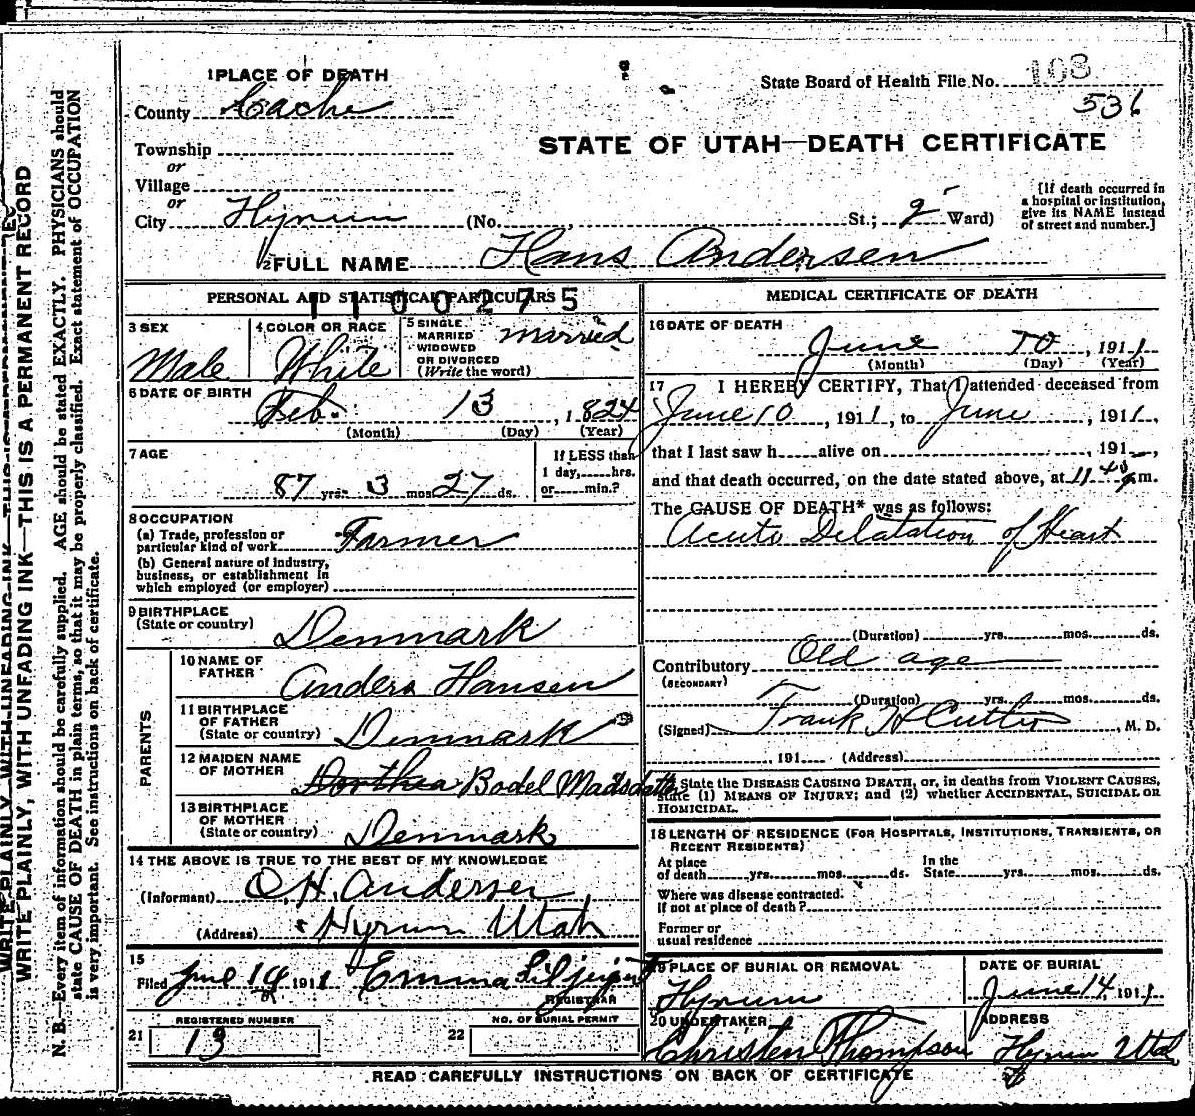 1 PLACE OF DEATH
State Board of Health File No. 103
536
County Cache
STATE OF UTAH—DEATH CERTIFICATE
Township
or
Village
or
City Hyrum (No. St.; 2 Ward)
[If death occurred in
a hospital or institution,
give its NAME instead
of street and number.]
2 FULL NAME Hans Andersen
PERSONAL AND STATISTICAL PARTICULARS
1100275
3 SEX
Male
4 COLOR OR RACE
White
5 SINGLE
MARRIED
WIDOWED
OR DIVORCED
(Write the word)
Married
6 DATE OF BIRTH
Feb. 13, 1824
(Month) (Day) (Year)
7 AGE
87 yrs. 3 mos. 27 ds.
If LESS than
1 day, hrs.
or min.?
8 OCCUPATION
(a) Trade, profession or
particular kind of work Farmer
(b) General nature of industry,
business, or establishment in
which employed (or employer)
9 BIRTHPLACE
(State or country)
Denmark
PARENTS
10 NAME OF
FATHER
Anders Hansen
11 BIRTHPLACE
OF FATHER
(State or country)
Denmark
12 MAIDEN NAME
OF MOTHER
Dorthea Bodel Madsdatter
13 BIRTHPLACE
OF MOTHER
(State or country)
Denmark
14 THE ABOVE IS TRUE TO THE BEST OF MY KNOWLEDGE
(Informant) O. H. Andersen
(Address) Hyrum Utah
15
Filed June 14 1911 Emma
REGISTRAR
REGISTERED NUMBER
21 13
NO. OF BURIAL PERMIT
22
MEDICAL CERTIFICATE OF DEATH
16 DATE OF DEATH
June 10, 1911
(Month) (Day) (Year)
17 I HEREBY CERTIFY, That I attended deceased from
June 10, 1911, to June, 1911,
that I last saw h alive on , 191 ,
and that death occurred, on the date stated above, at 11 40 m.
The CAUSE OF DEATH* was as follows:
Acute Delatation of Heart
(Duration) yrs. mos. ds.
Contributory Old age
(SECONDARY)
(Duration) yrs. mos. ds.
(Signed) Frank H Cutler, M. D.
, 191 (Address)
State the DISEASE CAUSING DEATH, or, in deaths from VIOLENT CAUSES,
state (1) MEANS OF INJURY; and (2) whether ACCIDENTAL, SUICIDAL OR
HOMICIDAL.
18 LENGTH OF RESIDENCE (FOR HOSPITALS, INSTITUTIONS, TRANSIENTS, OR
RECENT RESIDENTS)
At place
of death yrs. mos. ds.
In the
State yrs. mos. ds.
Where was disease contracted.
If not at place of death?
Former or
usual residence
19 PLACE OF BURIAL OR REMOVAL
Hyrum
DATE OF BURIAL
June 14, 1911
20 UNDERTAKER
Christen Thompson
ADDRESS
Hyrum Utah
READ CAREFULLY INSTRUCTIONS ON BACK OF CERTIFICATE
WRITE PLAINLY, WITH UNFADING INK—THIS IS A PERMANENT RECORD
N. B.—Every item of information should be carefully supplied. AGE should be stated EXACTLY. PHYSICIANS should
state CAUSE OF DEATH in plain terms, so that it may be properly classified. Exact statement of OCCUPATION
is very important. See instructions on back of certificate.